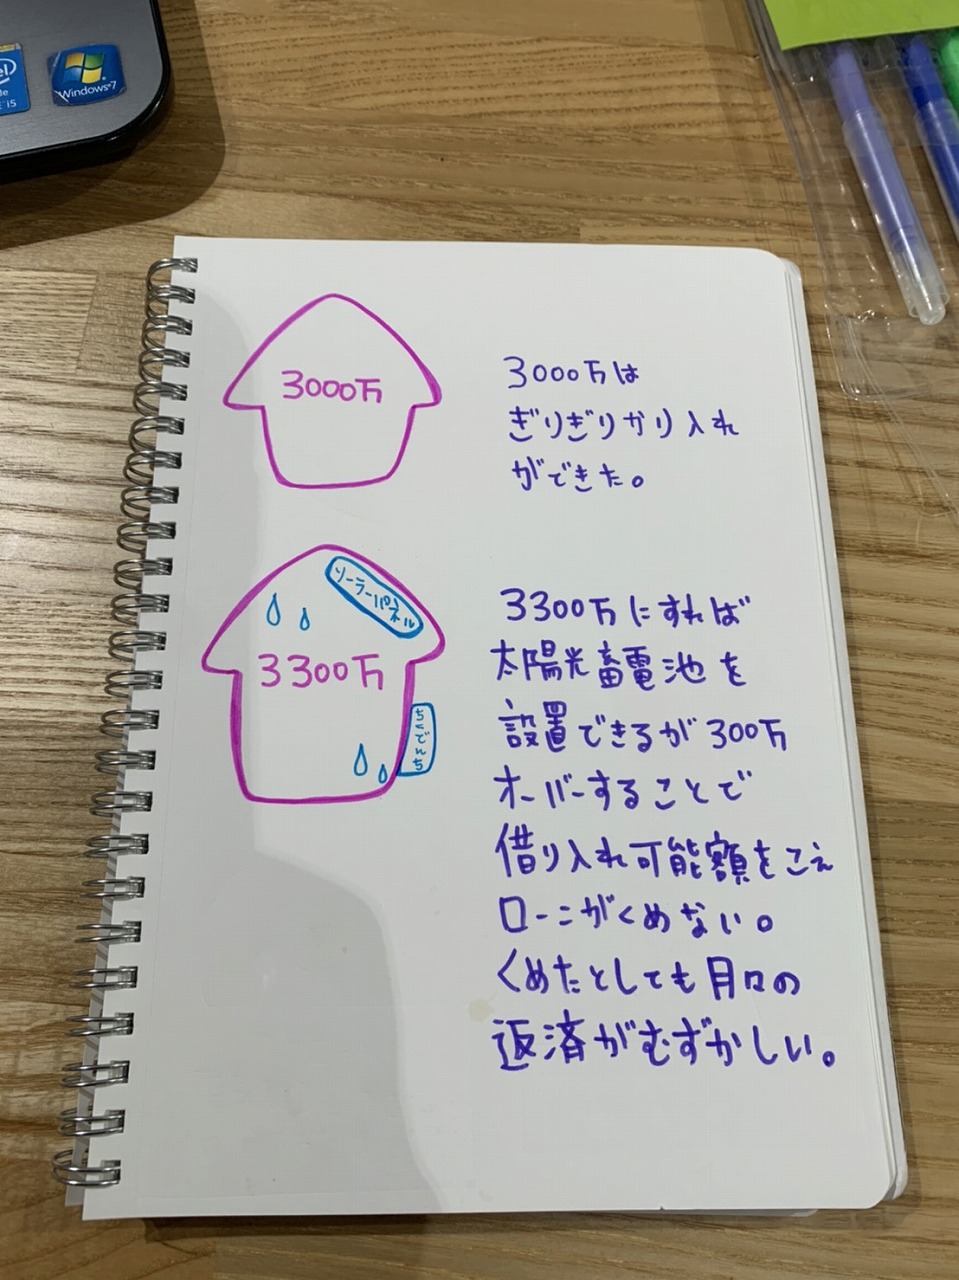 Windows 7
i5
3000万
3000万は
ぎりぎりかり入れ
ができた。
ソーラーパネル
3300万
ちくでんち
3300万にすれば
太陽光畜電池を
設置できるが300万
オーバーすることで
借り入れ可能額をこえ
ローンがくめない。
くめたとしても月々の
返済がむずかしい。